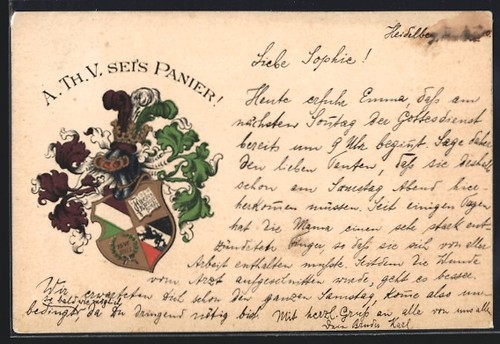 A. TH. V. SEI'S PANIER!
Heidelberg
Liebe Sophie!
Heute erfuhr Emma, daß am
nächsten Sonntag der Gottesdienst
bereits um 9 Uhr beginnt. Sage daher
den lieben Tanten, daß sie deshalb
schon am Samstag Abend hie-
herkommen müssen. Seit einigen Tagen
hat die Mama einen sehr stark ent-
zündeten Finger, so daß sie sich von aller
Arbeit enthalten mußte. Seitdem die Wunde
vom Arzt aufgeschnitten wurde, geht es besser.
Wir erwarteten Dich schon den ganzen Samstag, komme also un-
so bald wie möglich
bedingt, da Du dringend nötig bist. Mit herzl. Gruß an alle von uns allen
Dein Bruder Karl.